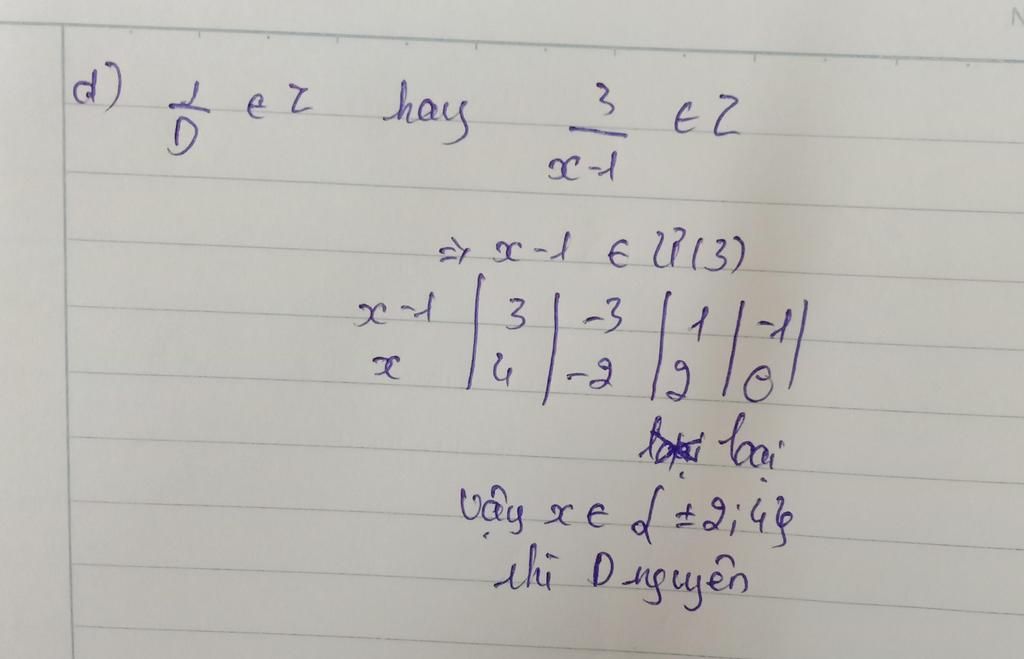 d) 1/D ∈ Z hay 3/(x-1) ∈ Z
=> x-1 ∈ Ư(3)
x-1 | 3 | -3 | 1 | -1 |
x | 4 | -2 | 2 | 0 |
loại
Vậy x ∈ { ±2; 4}
thì D nguyên